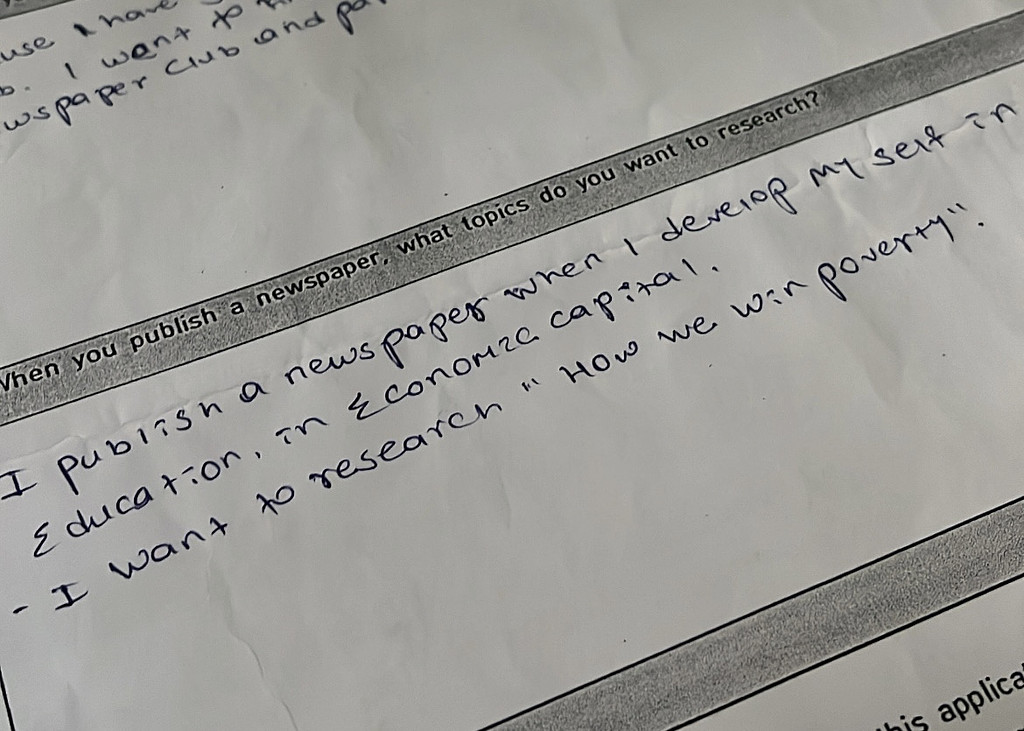 use I have
b. I want to
wspaper club and pa
When you publish a newspaper, what topics do you want to research?
I publish a newspaper when I develop my self in
Education, in Economic capital.
- I want to research "' How we win poverty".
this applica